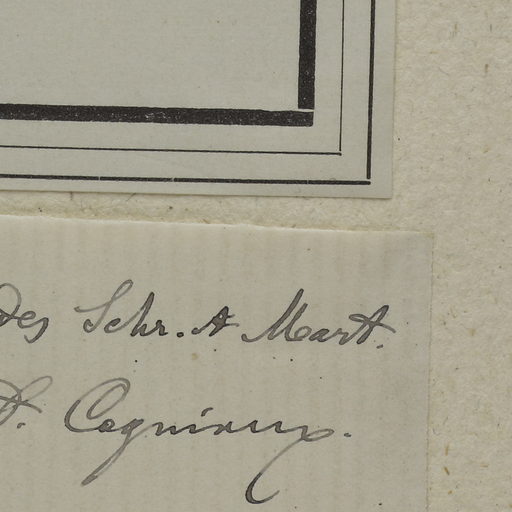 des Schr. & Mart.
t. Cogniaux.